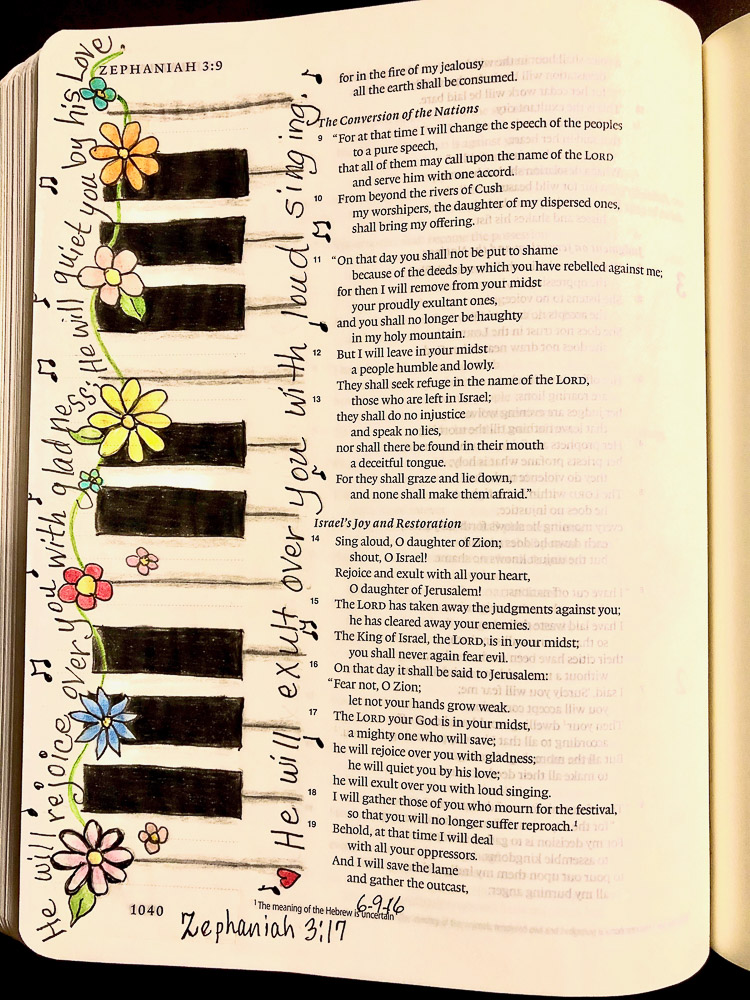 ZEPHANIAH 3:9
He will rejoice over you with gladness; He will quiet you by his Love
He will exult over you with loud singing.
for in the fire of my jealousy
all the earth shall be consumed.
The Conversion of the Nations
9 “For at that time I will change the speech of the peoples
to a pure speech,
that all of them may call upon the name of the LORD
and serve him with one accord.
10 From beyond the rivers of Cush
my worshipers, the daughter of my dispersed ones,
shall bring my offering.
11 “On that day you shall not be put to shame
because of the deeds by which you have rebelled against me;
for then I will remove from your midst
your proudly exultant ones,
and you shall no longer be haughty
in my holy mountain.
12 But I will leave in your midst
a people humble and lowly.
They shall seek refuge in the name of the LORD,
13 those who are left in Israel;
they shall do no injustice
and speak no lies,
nor shall there be found in their mouth
a deceitful tongue.
For they shall graze and lie down,
and none shall make them afraid.”
Israel's Joy and Restoration
14 Sing aloud, O daughter of Zion;
shout, O Israel!
Rejoice and exult with all your heart,
O daughter of Jerusalem!
15 The LORD has taken away the judgments against you;
he has cleared away your enemies.
The King of Israel, the LORD, is in your midst;
you shall never again fear evil.
16 On that day it shall be said to Jerusalem:
“Fear not, O Zion;
let not your hands grow weak.
17 The LORD your God is in your midst,
a mighty one who will save;
he will rejoice over you with gladness;
he will quiet you by his love;
he will exult over you with loud singing.
18 I will gather those of you who mourn for the festival,
so that you will no longer suffer reproach.1
19 Behold, at that time I will deal
with all your oppressors.
And I will save the lame
and gather the outcast,
1 The meaning of the Hebrew is uncertain
6-9-16
1040
Zephaniah 3:17